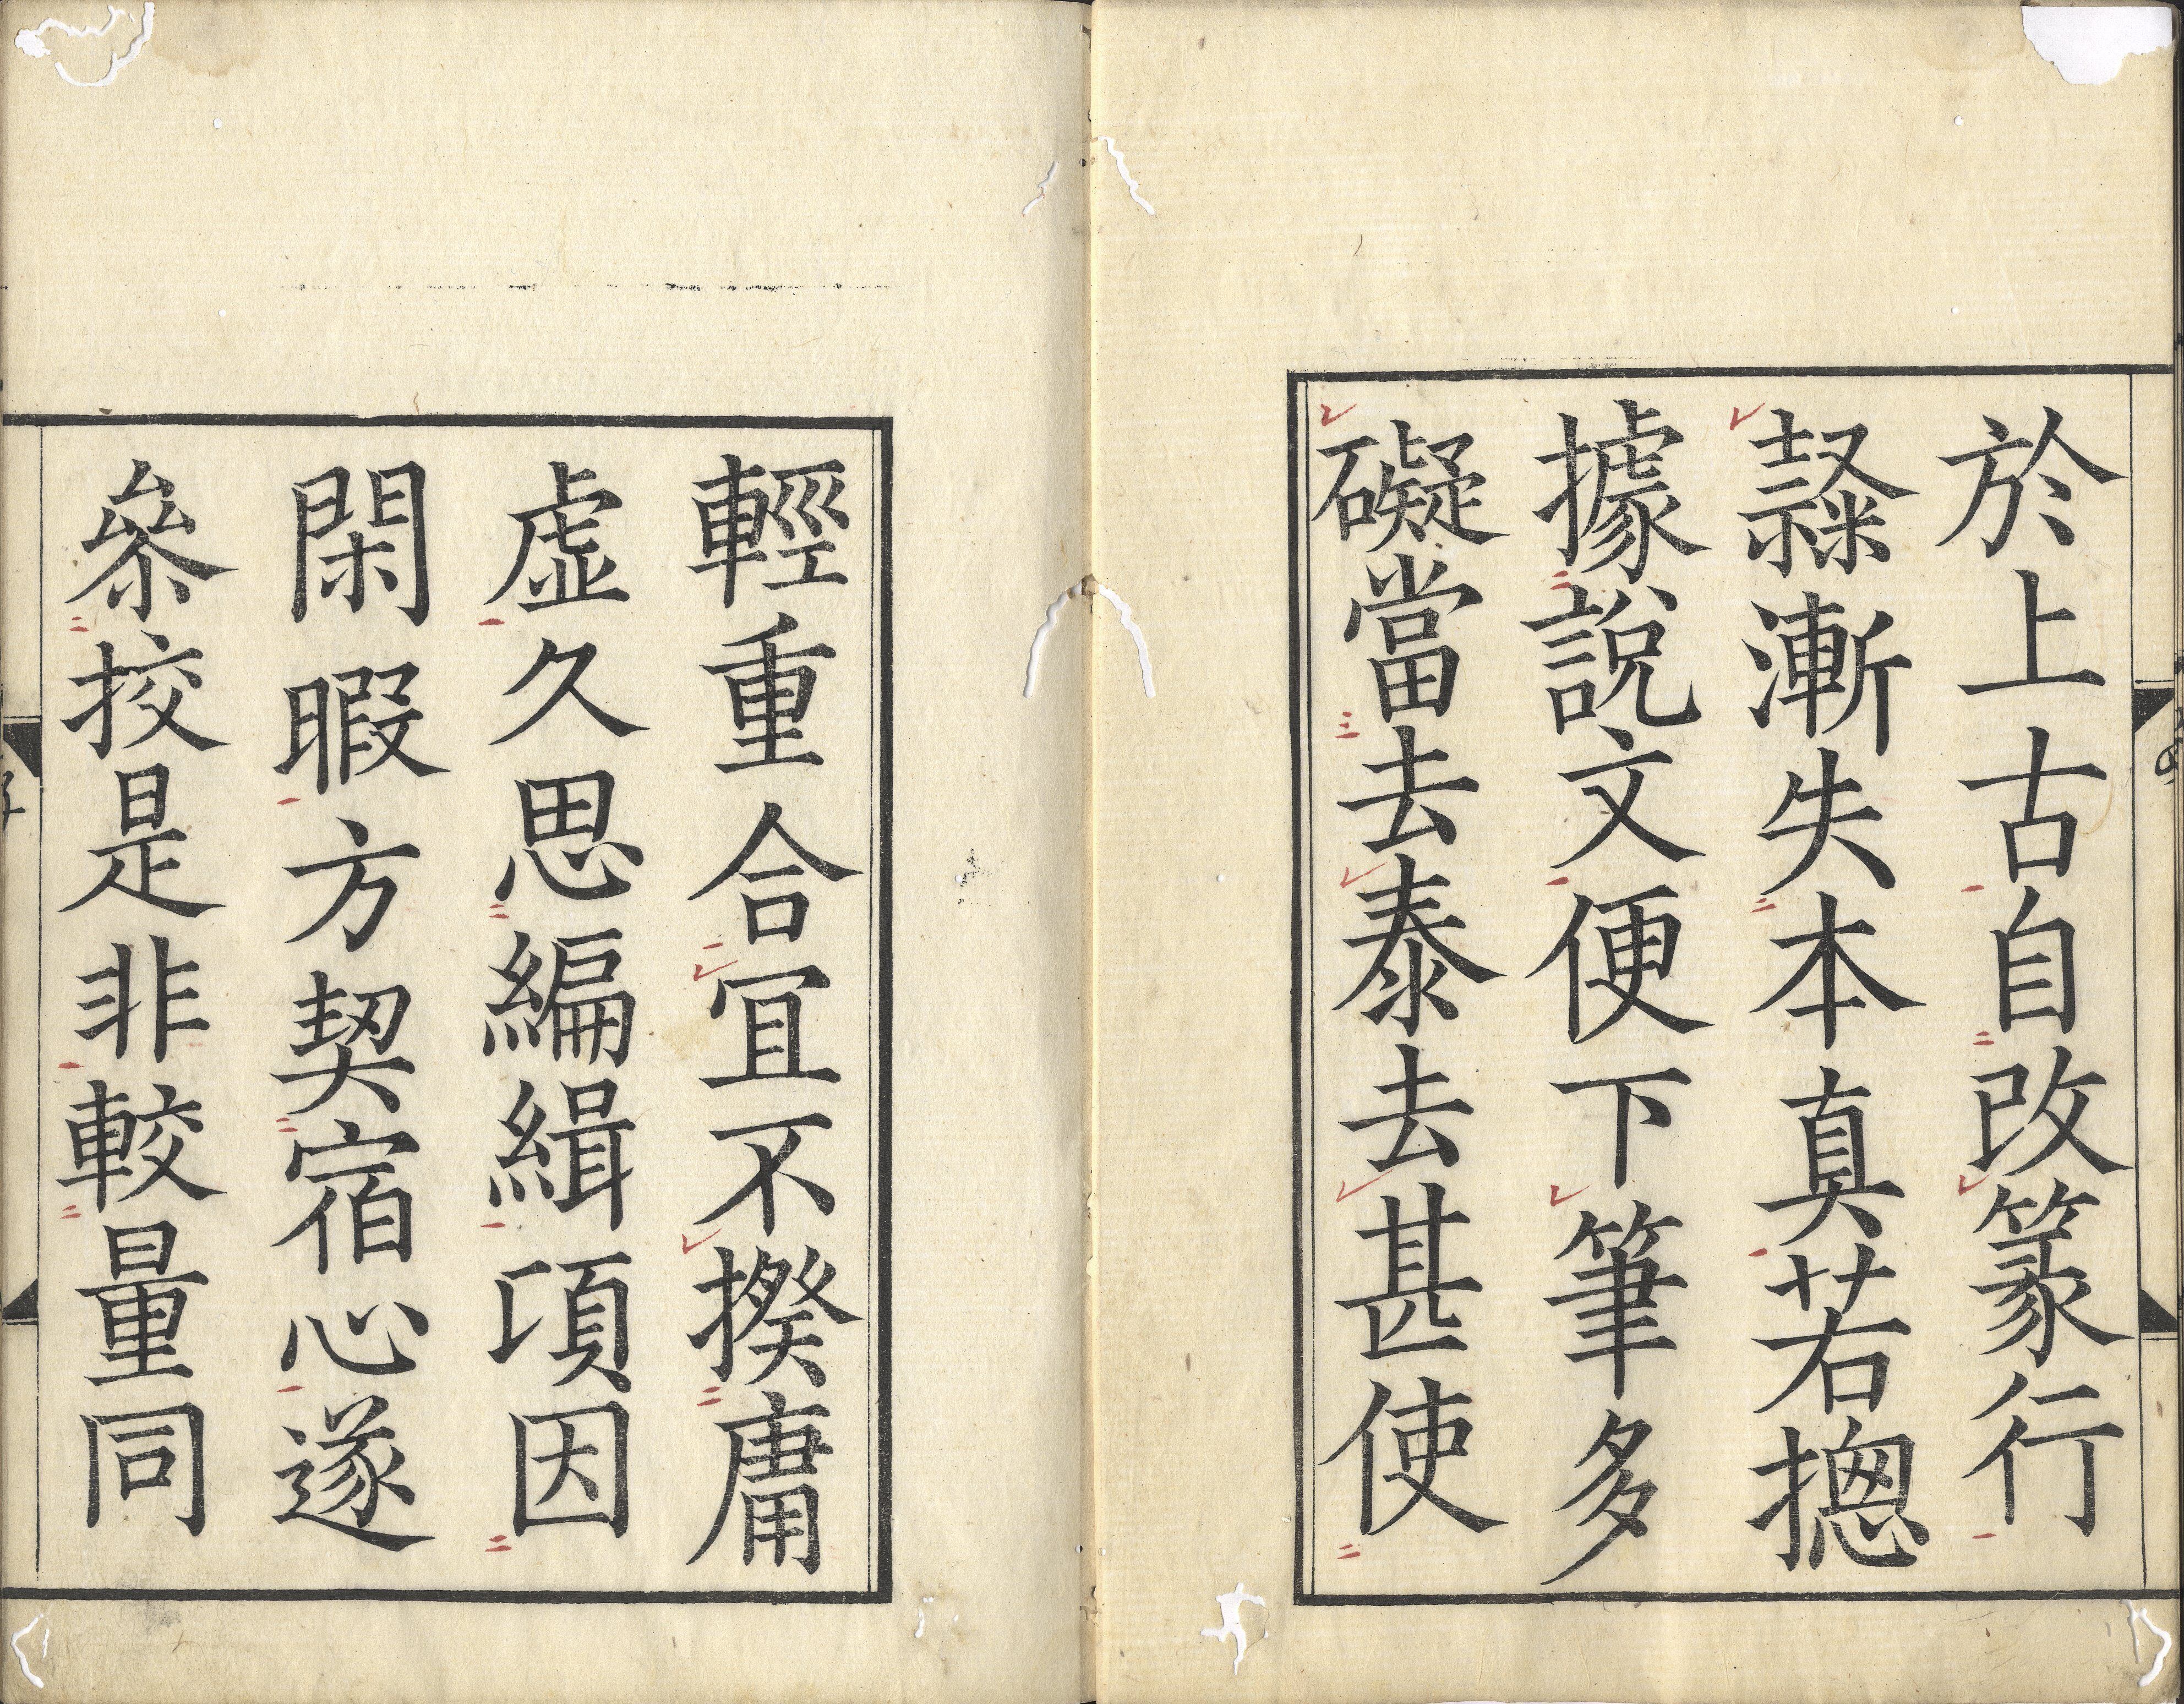 於上古自改篆行
隸漸失本真若摠
據說文便下筆多
礙當去泰去甚使
輕重合冝不揆庸
虛久思編緝頃因
閑暇方契宿心遂
叅挍是非較量同